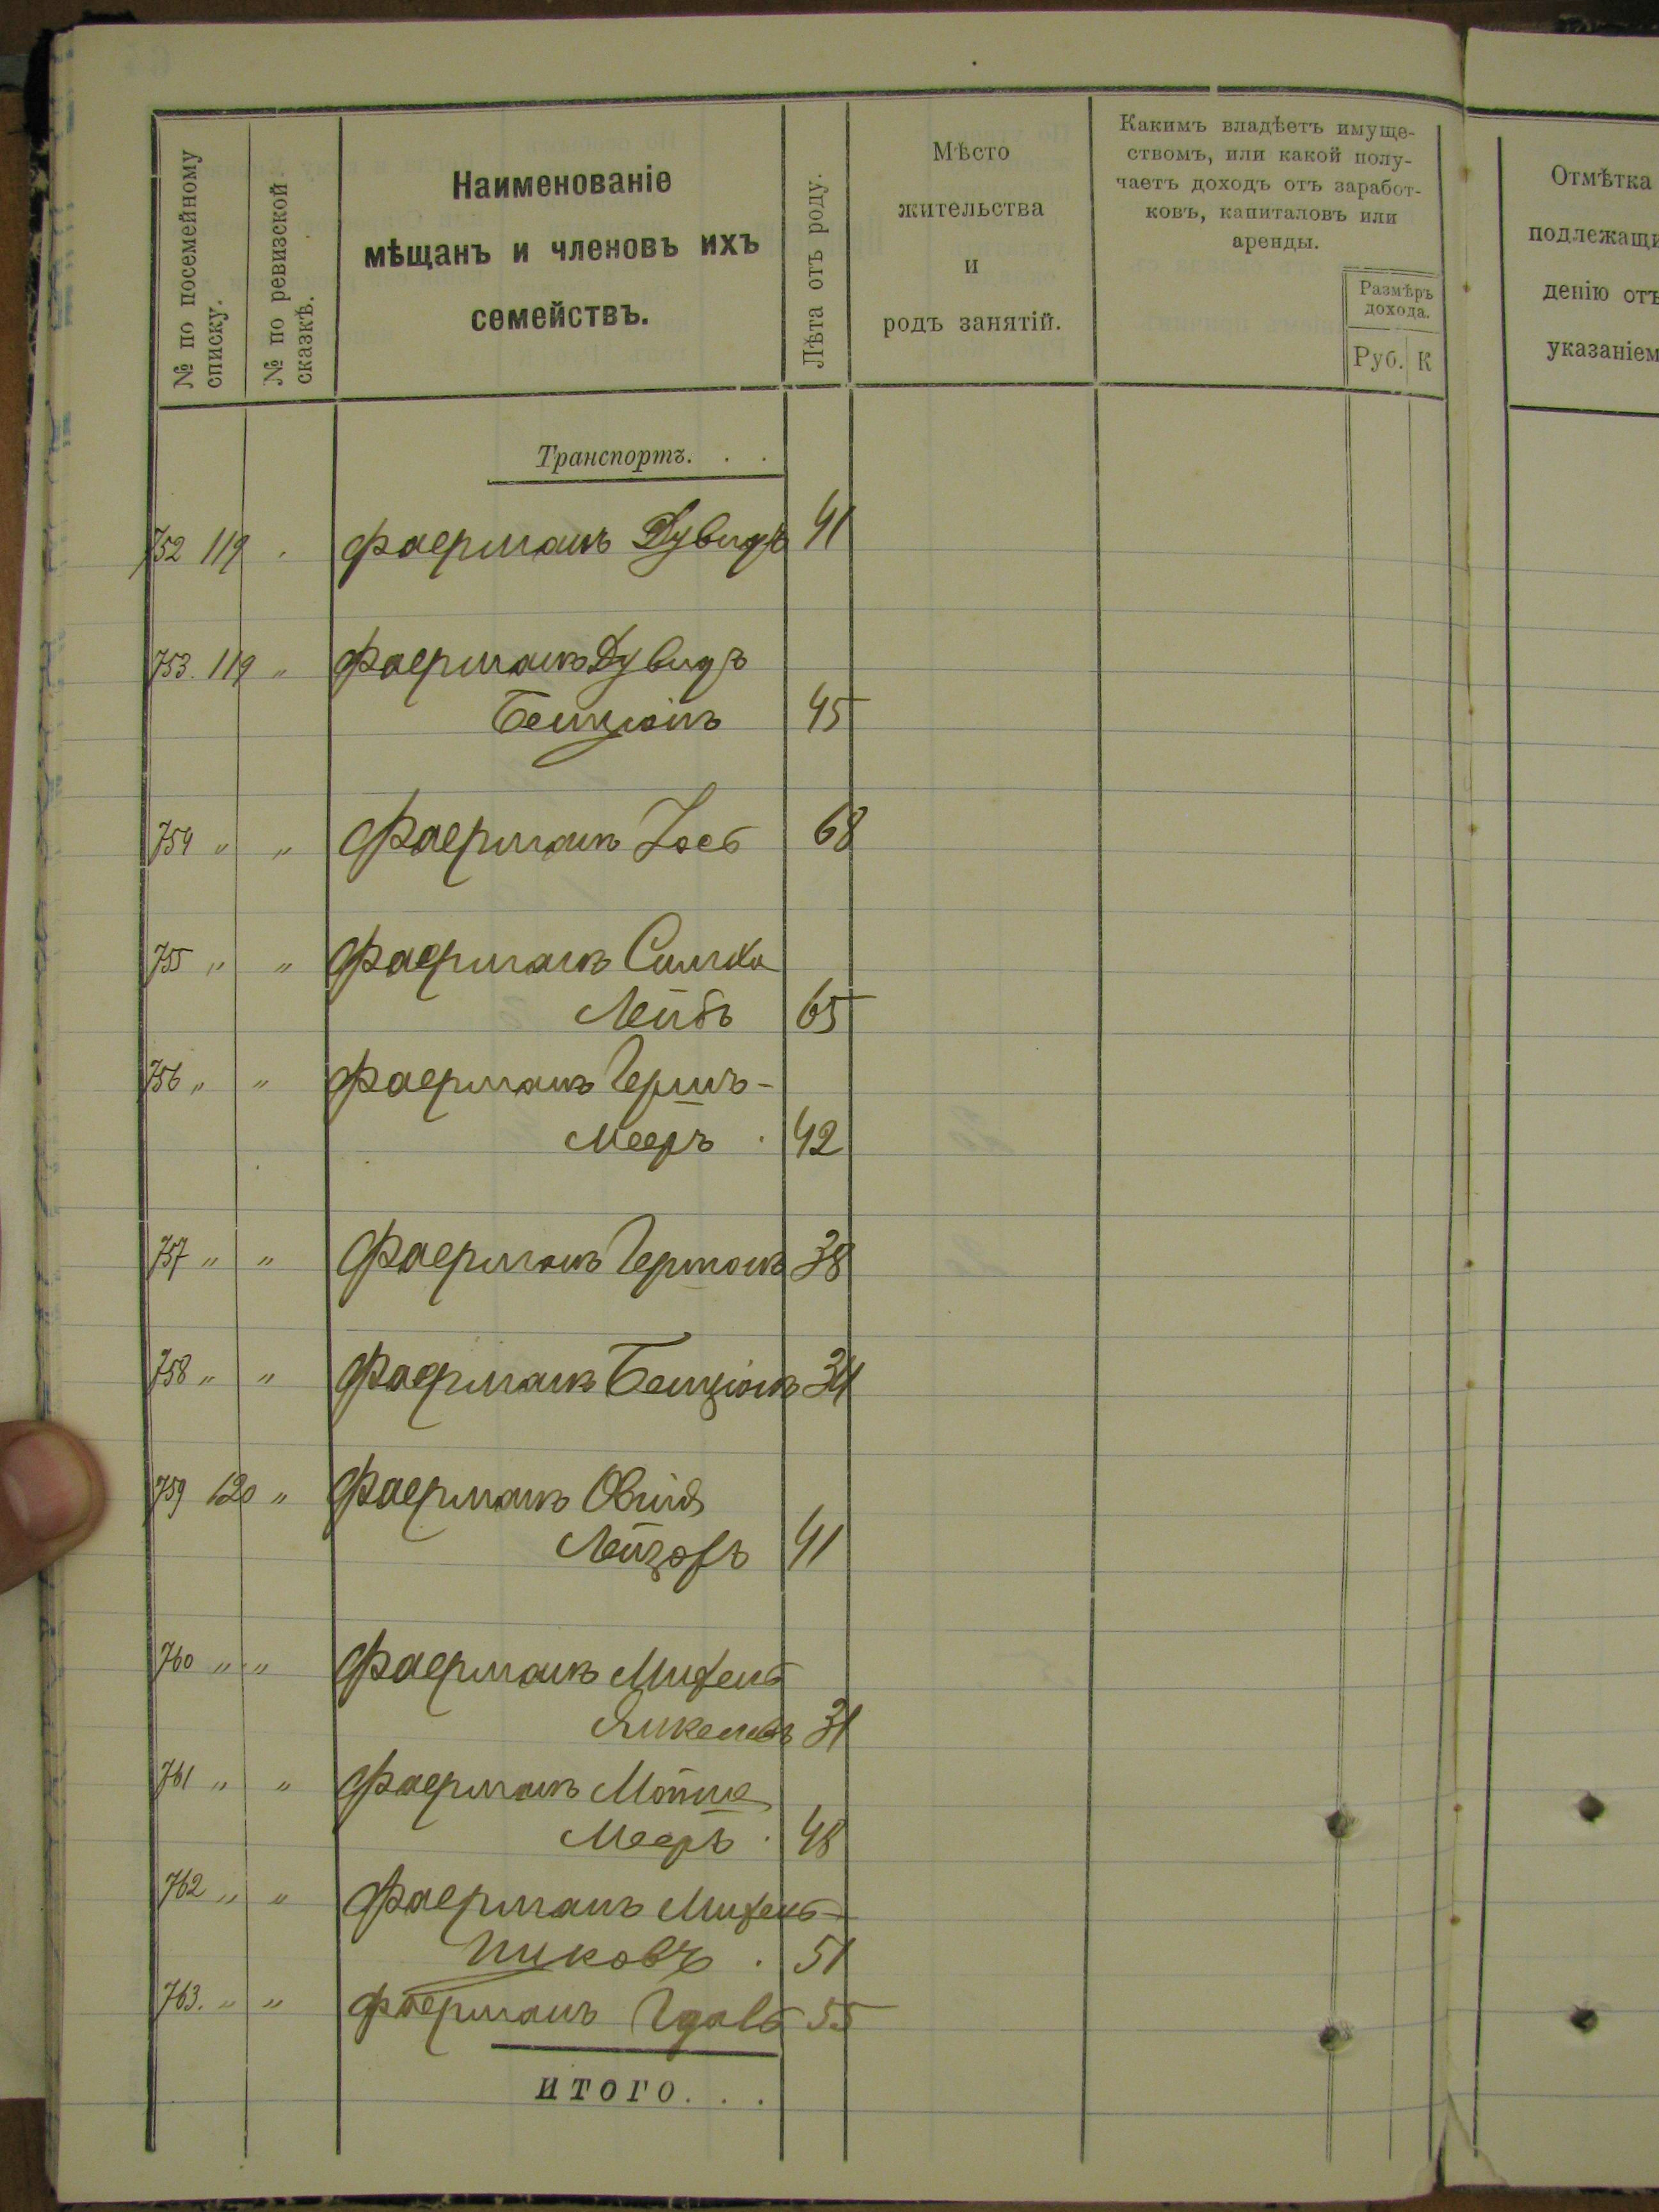 № по посемейному списку.
№ по ревизской сказкѣ.
Наименованіе
мѣщанъ и членовъ ихъ
семействъ.
Лѣта отъ роду.
Мѣсто
жительства
и
родъ занятій.
Какимъ владѣетъ имуще-
ствомъ, или какой полу-
чаетъ доходъ отъ заработ-
ковъ, капиталовъ или
аренды.
Размѣръ
дохода.
Руб. К
Отмѣтка
подлежащи
денію отъ
указаніем
Транспортъ. . .
752 119 Фаерманъ Дувидъ 41
753. 119 " Фаерманъ Дувидъ
Бенціонъ 45
754 " " Фаерманъ Іосъ 68
755 " " Фаерманъ Симха
Лейбъ 65
756 " " Фаерманъ Гершъ-
Мееръ 42
757 " " Фаерманъ Германъ 38
758 " " Фаерманъ Бенціонъ 34
759 120 " Фаерманъ Овшія
Лейзоръ 41
760 " " Фаерманъ Михель
Янкелевъ 31
761 " " Фаерманъ Мотив
Мееръ 48
762 " " Фаерманъ Михель-
Ициковъ 51
763. " " Фаерманъ Гдаль 55
ИТОГО. . .